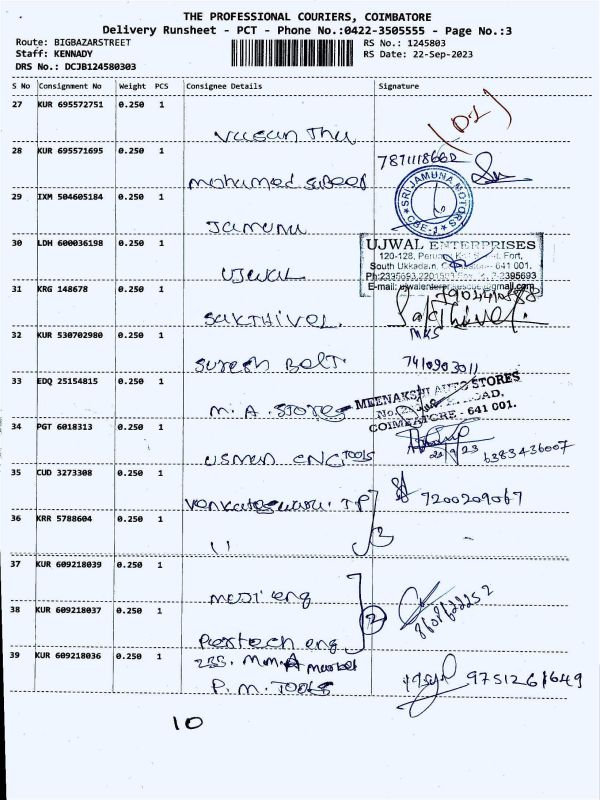 THE PROFESSIONAL COURIERS, COIMBATORE
Delivery Runsheet - PCT - Phone No.:0422-3505555 - Page No.:3
Route: BIGBAZARSTREET RS No.: 1245803
Staff: KENNADY RS Date: 22-Sep-2023
DRS No.: DCJB124580303
S No Consignment No Weight PCS Consignee Details Signature
27 KUR 695572751 0.250 1
Vasan Thu (D1)
28 KUR 695571695 0.250 1
mohamed
29 IXM 504605184 0.250 1 SRI JAMUNA MOTORS CBE-1
Jamunu
30 LDH 600036198 0.250 1 UJWAL ENTERPRISES
120-128, Fort,
South Ukkadam, 641 001.
UJWAL
E-mail: ujwalenterprisescbe@gmail.com
31 KRG 148678 0.250 1
SAKTHIVEL. Sakthivel
32 KUR 530702980 0.250 1 MKS
Suresh Belt. 7410903011
33 EDQ 25154815 0.250 1 MEENAKSHI AUTO STORES
M.A. Stores
COIMBATORE - 641 001.
34 PGT 6018313 0.250 1
USMAN ENG TOOLS 22/9/23 6383436007
35 CUD 3273308 0.250 1
T.P 7200209067
36 KRR 5788604 0.250 1
11 3
37 KUR 609218039 0.250 1
eng
38 KUR 609218037 0.250 1 2
eng
39 KUR 609218036 0.250 1
235. M.M.A Market
P.M. TOOLS 9751261649
10